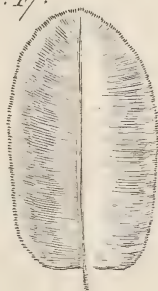 . 17.